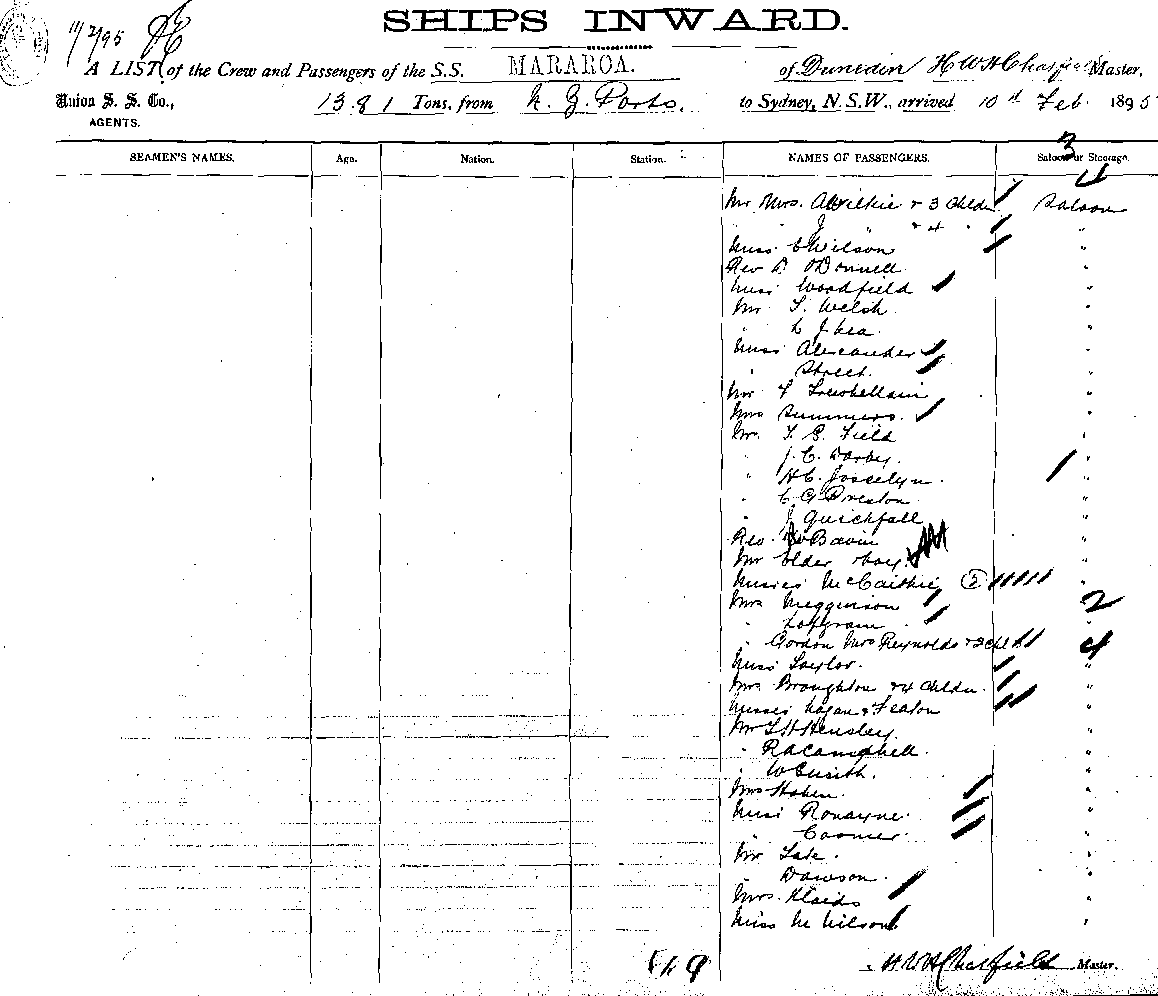 SHIPS INWARD.
11/2/95
A LIST of the Crew and Passengers of the S.S. MARAROA. of Dunedin H W H Chatfield Master,
Union S. S. Co., 1381 Tons, from N. Z. Ports. to Sydney, N. S. W., arrived 10th Feb. 1895
AGENTS.
SEAMEN'S NAMES. Age. Nation. Station. NAMES OF PASSENGERS. Saloon or Steerage.
3
4
Mr Mrs. A Wilkie & 3 Childn Saloon
" " J " & 4 " "
Miss E Wilson "
Rev D. O'Donnell "
Miss Woodfield "
Mr. S. Welsh "
" L J Lea "
Miss Alexander "
" Street. "
Mr F "
Mrs Summers. "
Mr. T. E. Field "
" J. C. Darby. "
" H C. Josselyn. "
" C G Preston. "
" J Quickfall "
Rev. Bavin "
Mr Elder & boy. "
Misses McCaithie (2) "
Mrs Megginson 2
" "
" Gordon Mrs Reynolds & 2 chl 4
Miss Taylor. "
Mrs. Broughton & 4 Childn. "
Misses Hogan & Featon "
Mr L H Hensley. "
" R A Campbell. "
" W Smith. "
Mrs "
Miss Ronayne. "
" Coomer. "
Mr "
" Dawson. "
Mrs. "
Miss M Wilson "
H W H Chatfield Master.